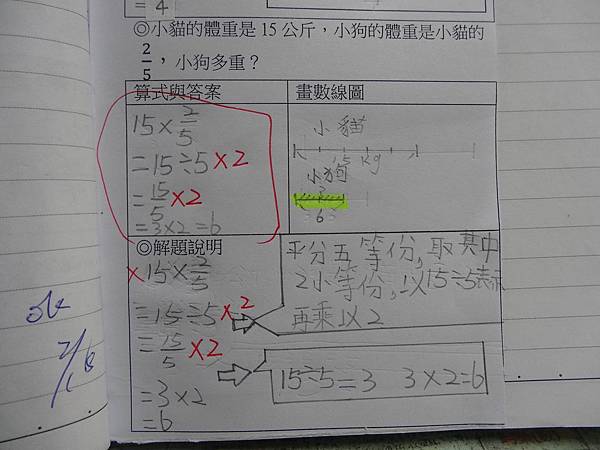 = 4
◎小貓的體重是 15 公斤，小狗的體重是小貓的
2/5，小狗多重？
算式與答案
畫數線圖
15×2/5
=15÷5×2
=15/5×2
=3×2=6
小貓
15 kg
小狗
?
6
◎解題說明
×15×2/5
=15÷5×2
=15/5×2
=3×2
=6
平分五等份，取其中
2小等份，以15÷5表示
再乘以2
15÷5=3 3×2=6